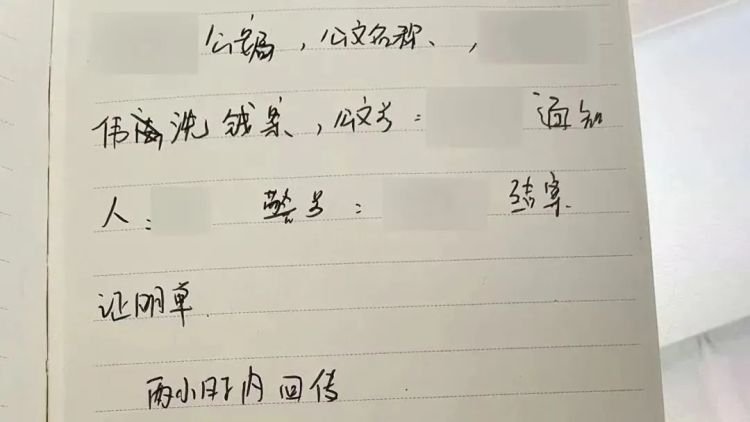 公安局，公文名称、，
伟 洗钱案，公文号： 通知
人： 警号： 结案
证明单
两小时内回传